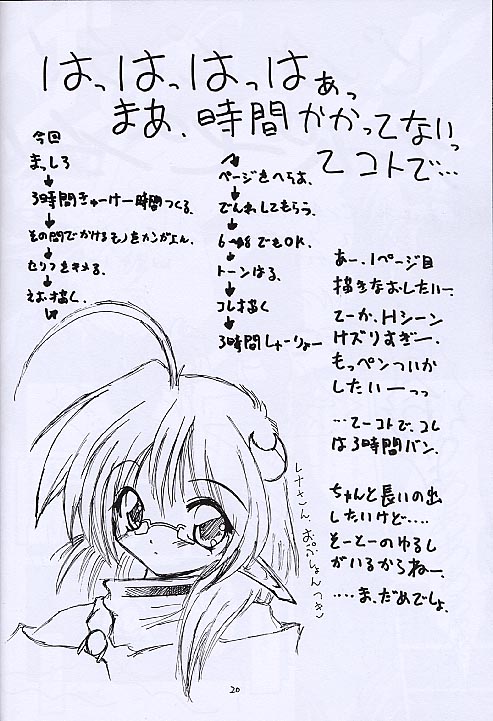 はっはっはっはぁっ
まあ、時間かかってないっ
てコトで…
今回
まっしろ
↓
3時間きゅーけー一時間つくる。
↓
その間でかけるモノをカンがえん。
↓
セリフをキメる。
↓
えお描く。
ページをへらす。
↓
でんわしてもらう。
↓
6〜8でもOK。
↓
トーンはる。
↓
コレ描く
↓
3時間しゅーりょー
あー、1ページ目
描きなおしたいー。
てーか、Hシーン
ケズりすぎー。
もっペンついか
したいーっっ
…てーコトで、コレ
は3時間バン。
ちゃんと長いの出
したいけど‥‥
そーとーのゆるし
がいるからねー。
‥‥ま、だめでしょ。
レナさん、おぷしょんつき
20